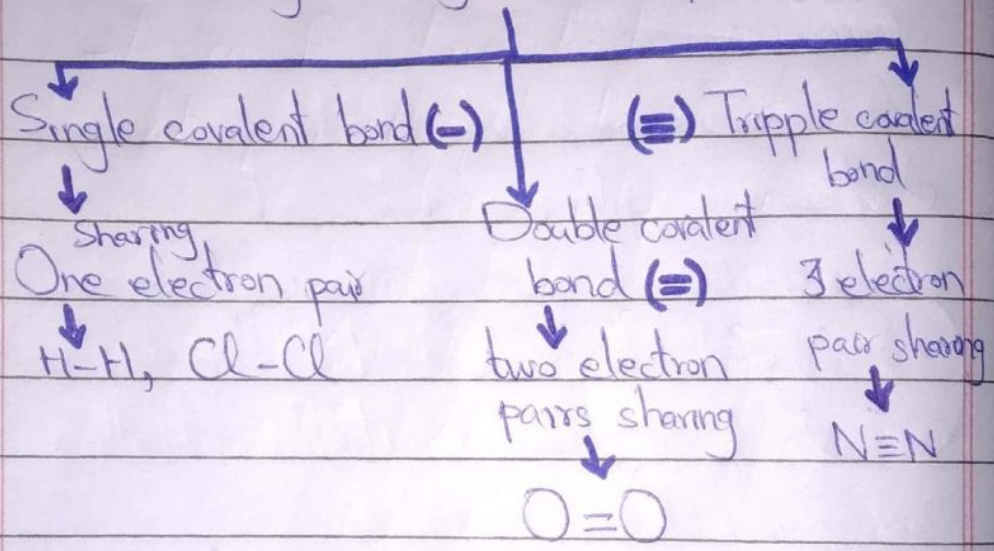 Single covalent bond (-)
Sharing
One electron pair
H-H, Cl-Cl
Double covalent
bond (=)
two electron
pairs sharing
O=O
(≡) Tripple covalent
bond
3 electron
pair sharing
N≡N